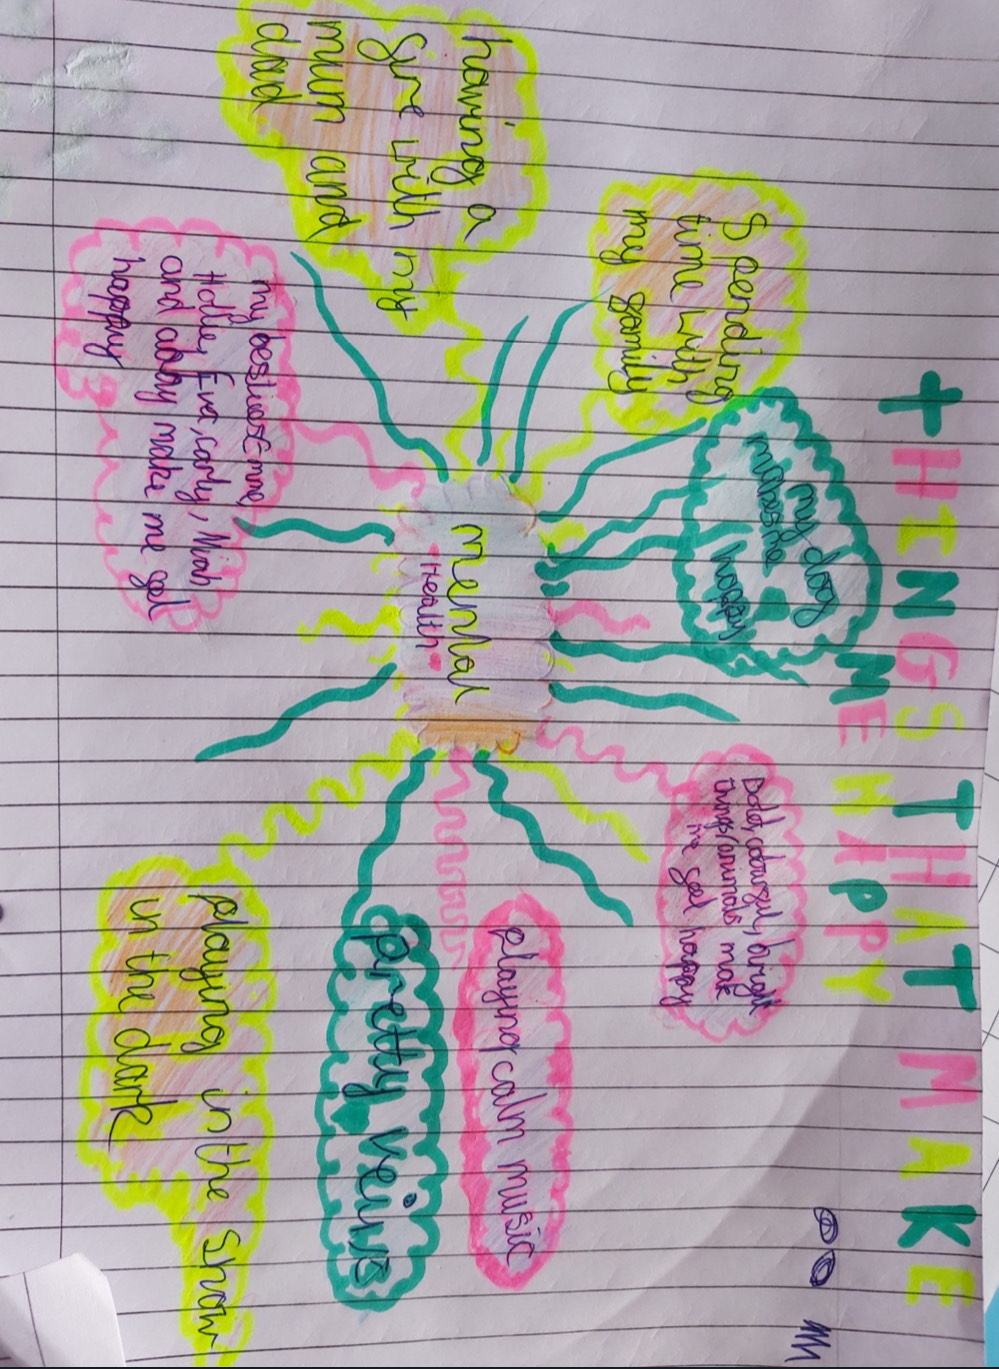 THINGS THAT MAKE
ME HAPPY
Spending
time with
my family
my dog
makes me
happy
having a
fire with my
mum and
dad
mental
Health
my besties Emma,
Hollie, Evie, carly, Niah
and abby make me feel
happy
Bold, colourful, bright
things/animals make
me feel happy
playing calm music
pretty veiws
playing in the snow
in the dark